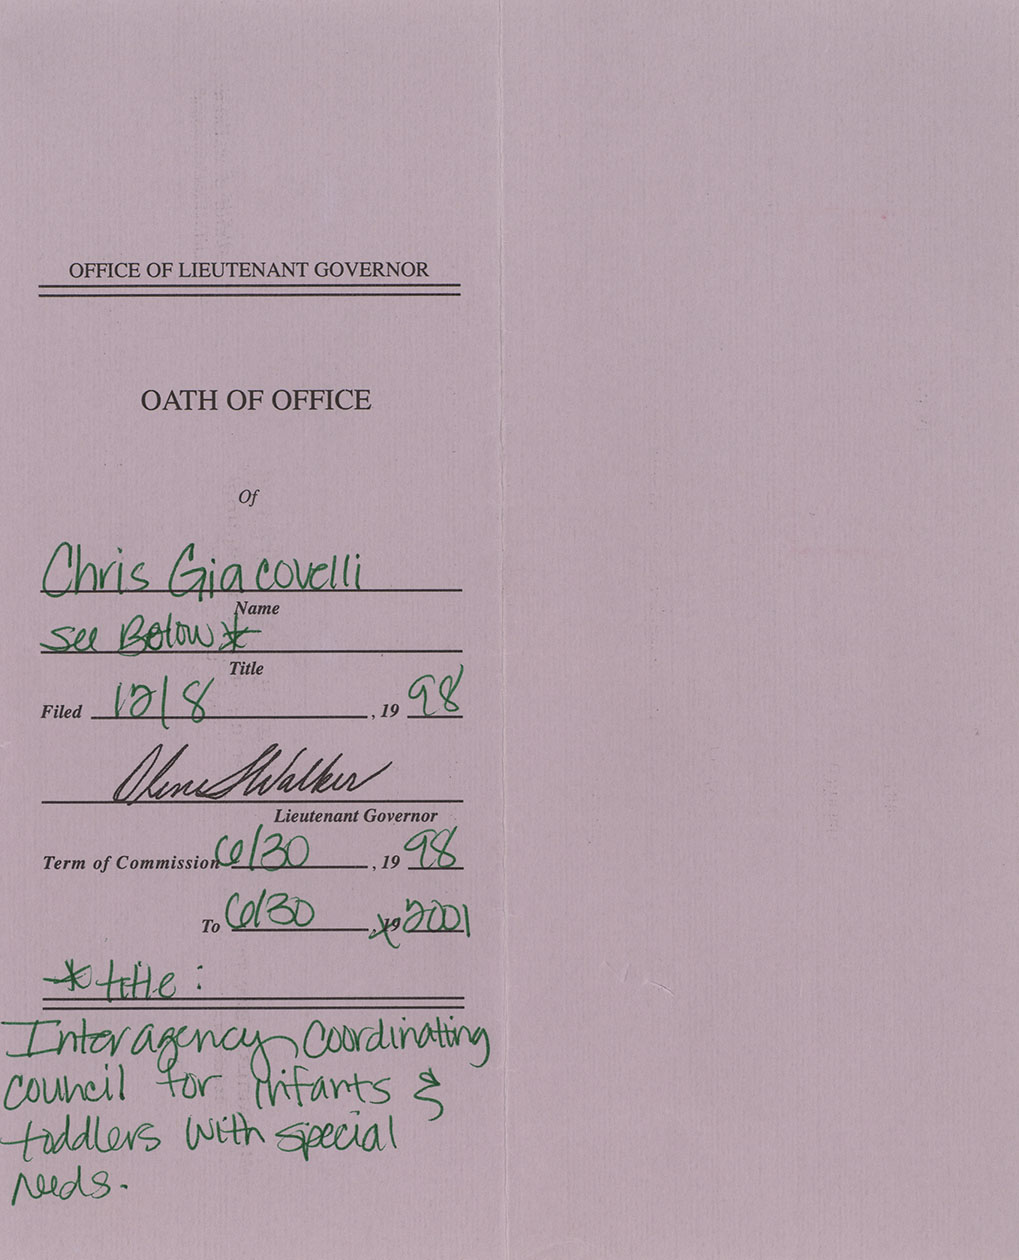 OFFICE OF LIEUTENANT GOVERNOR
OATH OF OFFICE
Of
Chris Giacovelli
Name
See Below *
Title
Filed 12/8, 19 98
Olene S Walker
Lieutenant Governor
Term of Commission 6/30, 19 98
To 6/30, 19 2001
* title :
Interagency Coordinating
Council for infants &
toddlers with special
needs.